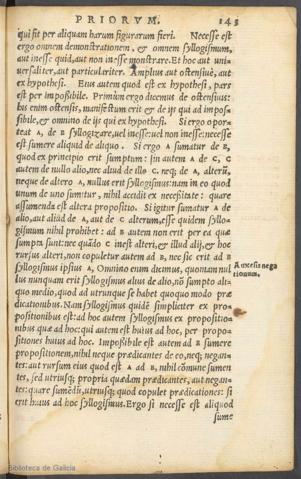 PRIORVM. 143
qui sit per aliquam harum figurarum fieri. Necesse est
ergo omnem demonstrationem, & omnem syllogismum,
aut inesse quid, aut non inesse monstrare. Et hoc aut uni-
uersaliter, aut particulariter. Amplius aut ostensiuè, aut
ex hypothesi. Eius autem quod est ex hypothesi, pars
est per impossibile. Primùm ergo dicemus de ostensiuis:
his enim ostensis, manifestum erit & de ijs qui ad impos-
sibile, & omnino de ijs qui ex hypothesi. Si ergo opor-
teat A, de B syllogizare, uel inesse: uel non inesse: necesse
est sumere aliquid de aliquo. Si ergo A sumatur de B,
quod ex principio erit sumptum: sin autem A de C, C
autem de nullo alio, nec aliud de illo C. neq; de A, alterū,
neque de altero A, nullus erit syllogismus: nam in eo quod
unum de uno sumitur, nihil accidit ex necessitate: quare
assumenda est altera propositio. Si igitur sumatur A de
alio, aut aliud de A, aut de C alterum, esse quidem syllo-
gismum nihil prohibet: ad B autem non erit per ea quæ
sumpta sunt: nec quādo C inest alteri, & illud alij, & hoc
rursus alteri, non copuletur autem ad B, nec sic erit ad B
syllogismus ipsius A, Omnino enim dicimus, quoniam nul
lus nunquam erit syllogismus alius de alio, nō sumpto ali-
quo medio, quod ad utrunque se habet quoquo modo præ
dicationibus. Nam syllogismus quidē simpliciter ex pro-
positionibus est: ad hoc autem syllogismus ex propositio-
nibus quæ ad hoc: qui autem est huius ad hoc, per propo-
sitiones huius ad hoc. Impossibile est autem ad B sumere
propositionem, nihil neque prædicantes de eo, neq; negan-
tes: aut rursum eius quod est A ad B, nihil cōmune sumen
tes, sed utriusq; propria quædam prædicantes, aut negan-
tes: quare sumēdū, utriusq; quod copulet prædicationes: si
erit huius ad hoc syllogismus. Ergo si necesse est aliquod
sume
Biblioteca de Galicia